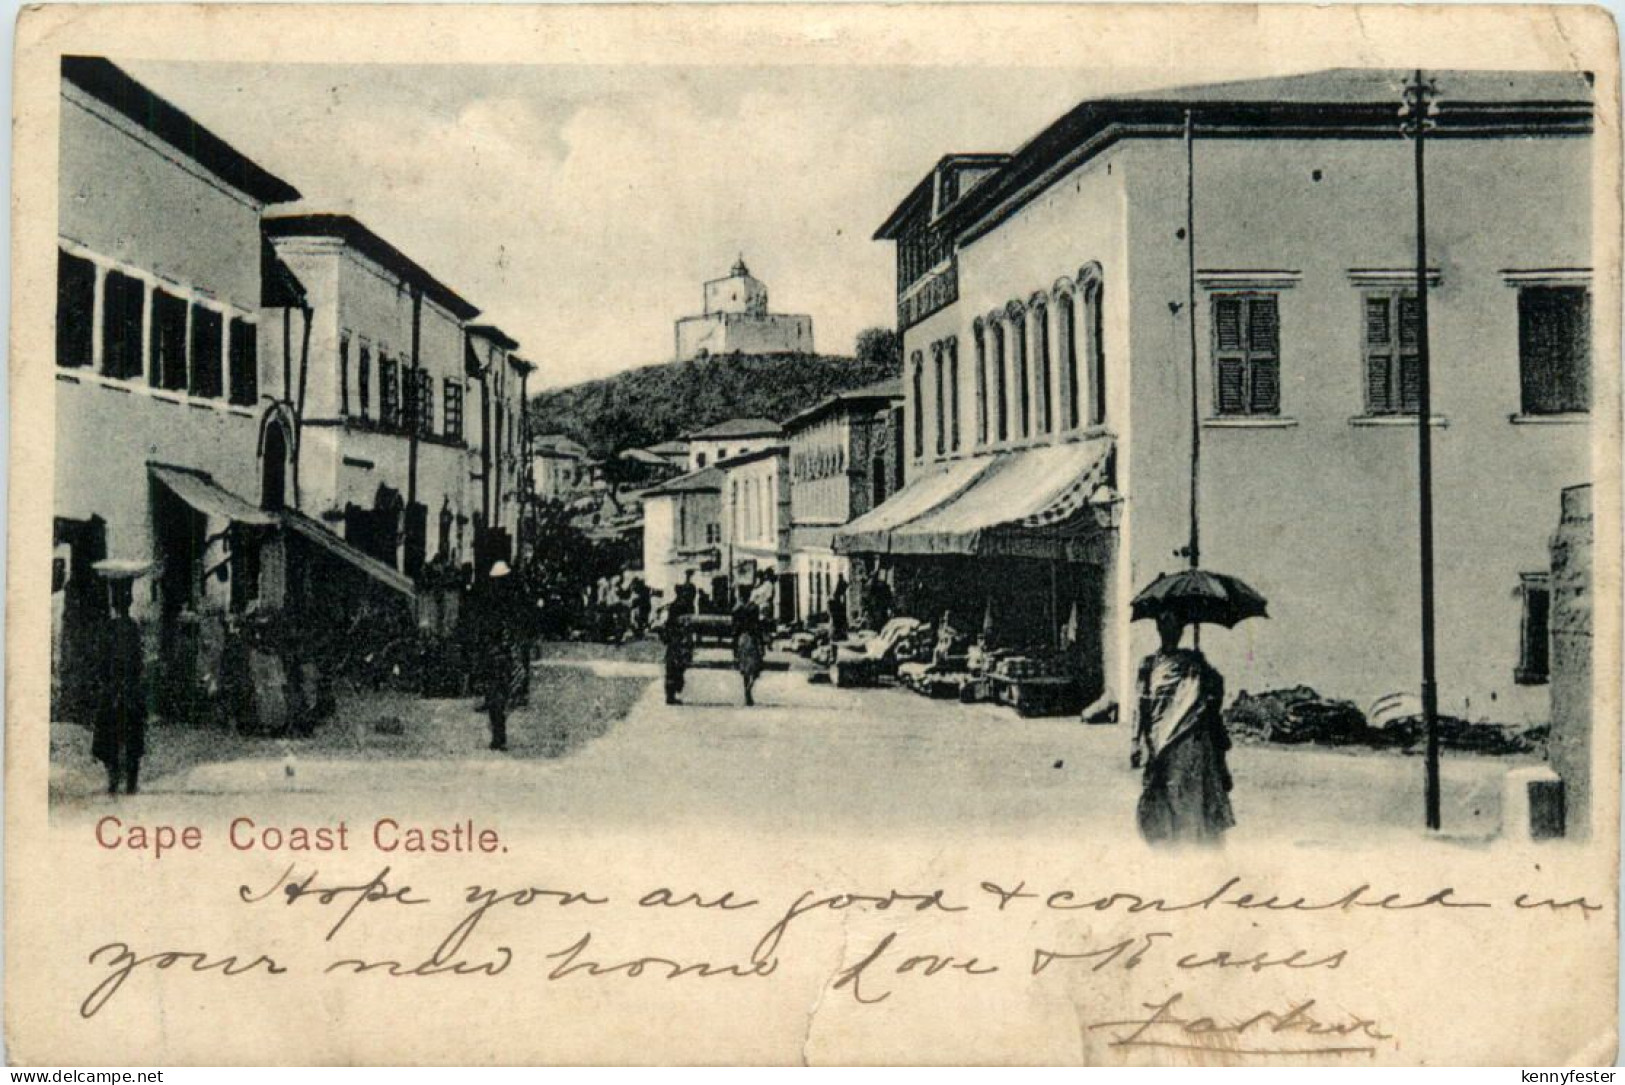 Cape Coast Castle.
Hope you are good & contented in
your new home Love & Kisses
Father
www.delcampe.net
kennyfester